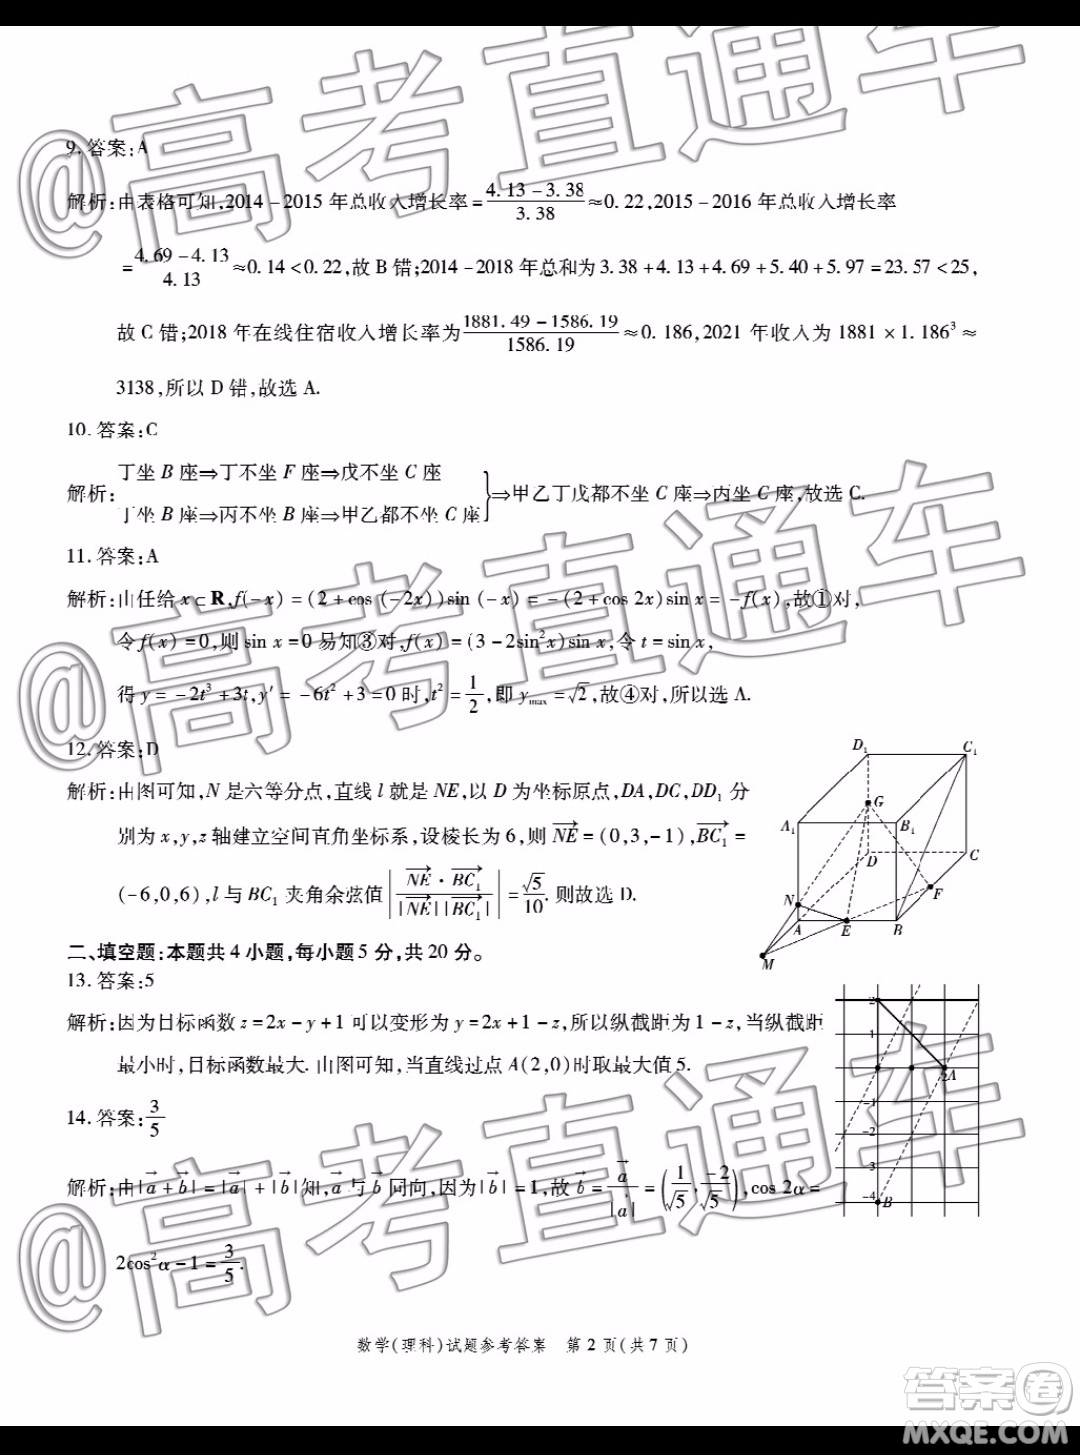 9. 答案:A
解析:由表格可知,2014-2015 年总收入增长率=(4.13-3.38)/3.38≈0.22,2015-2016 年总收入增长率
=(4.69-4.13)/4.13≈0.14<0.22,故 B 错;2014-2018 年总和为 3.38+4.13+4.69+5.40+5.97=23.57<25,
故 C 错;2018 年在线住宿收入增长率为(1881.49-1586.19)/1586.19≈0.186,2021 年收入为 1881×1.186³≈
3138,所以 D 错,故选 A.
10. 答案:C
解析:
丁坐 B 座⇒丁不坐 F 座⇒戊不坐 C 座
丁坐 B 座⇒丙不坐 B 座⇒甲乙都不坐 C 座
}⇒甲乙丁戊都不坐 C 座⇒丙坐 C 座,故选 C.
11. 答案:A
解析:由任给 x⊂R,f(-x)=(2+cos (-2x))sin (-x)=-(2+cos 2x)sin x=-f(x),故①对,
令 f(x)=0,则 sin x=0 易知③对,f(x)=(3-2sin²x)sin x,令 t=sin x,
得 y=-2t³+3t,y′=-6t²+3=0 时,t²=1/2,即 y_max=√2,故④对,所以选 A.
12. 答案:D
解析:由图可知,N 是六等分点,直线 l 就是 NE,以 D 为坐标原点,DA,DC,DD₁ 分
别为 x,y,z 轴建立空间直角坐标系,设棱长为 6,则 NE→=(0,3,-1),BC₁→=
(-6,0,6),l 与 BC₁ 夹角余弦值|NE→·BC₁→/(|NE→||BC₁→|)|=√5/10. 则故选 D.
D₁
C₁
G
A₁
B₁
D
C
N
F
A
E
B
M
二、填空题:本题共 4 小题,每小题 5 分,共 20 分。
13. 答案:5
解析:因为目标函数 z=2x-y+1 可以变形为 y=2x+1-z,所以纵截距为 1-z,当纵截距
最小时,目标函数最大. 由图可知,当直线过点 A(2,0)时取最大值 5.
2
1
2A
-1
-2
3
-4 B
14. 答案:3/5
解析:由|a→+b→|=|a→|+|b→|知,a→与 b→同向,因为|b→|=1,故 b→=a→/|a→|=(1/√5,-2/√5),cos 2α=
2cos²α-1=3/5.
数学(理科)试题参考答案 第 2 页(共 7 页)
@高考直通车
@高考直通车
@高考直通车
答案卷
MXQE.COM